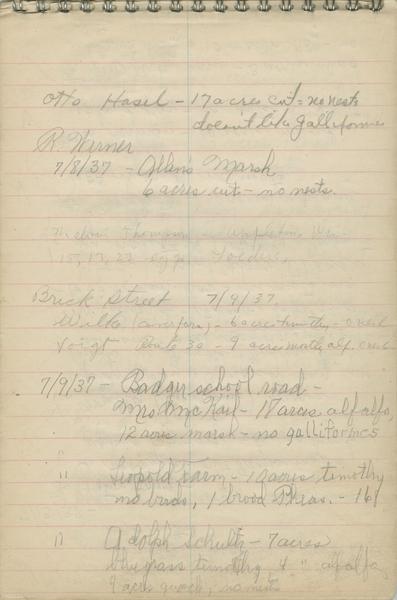 Otto Hasel - 17 acres cut = no nests
doesn't like galliformes
R. Warner
7/8/37 - Allen's Marsh
6 acres cut - no nests.
Thompson - Appleton
15, 17, 22 eggs
Brick Street 7/9/37
Wilke - 6 acres timothy -
Voigt Route 3 - 9 acres mostly alf.
7/9/37 - Badger school road -
Mrs. - 18 acres alfalfa,
12 acres marsh - no galliformes
" Leopold Farm - 10 acres timothy
no birds, 1 brood Pheas. -
" Adolph Schultz - 7 acres
bluegrass timothy 4 " alfalfa
9 acres quack, no nests